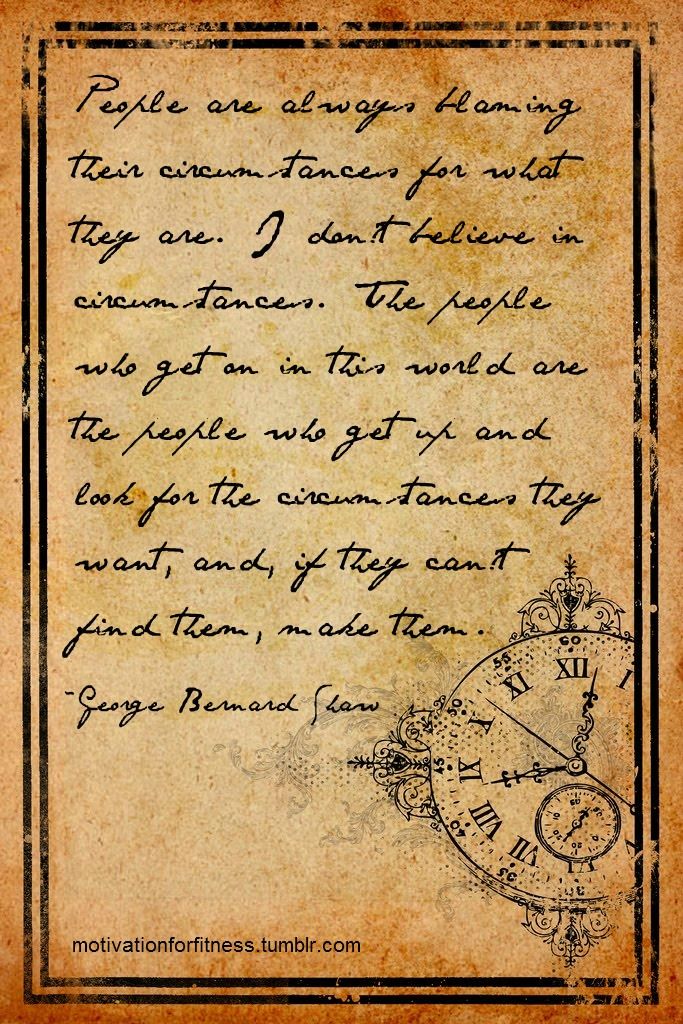 People are always blaming
their circumstances for what
they are. I don't believe in
circumstances. The people
who get on in this world are
the people who get up and
look for the circumstances they
want, and, if they can't
find them, make them.
~George Bernard Shaw
60
55
XII
I
XI
50
X
45
IX
40
VIII
VII
35
60
motivationforfitness.tumblr.com